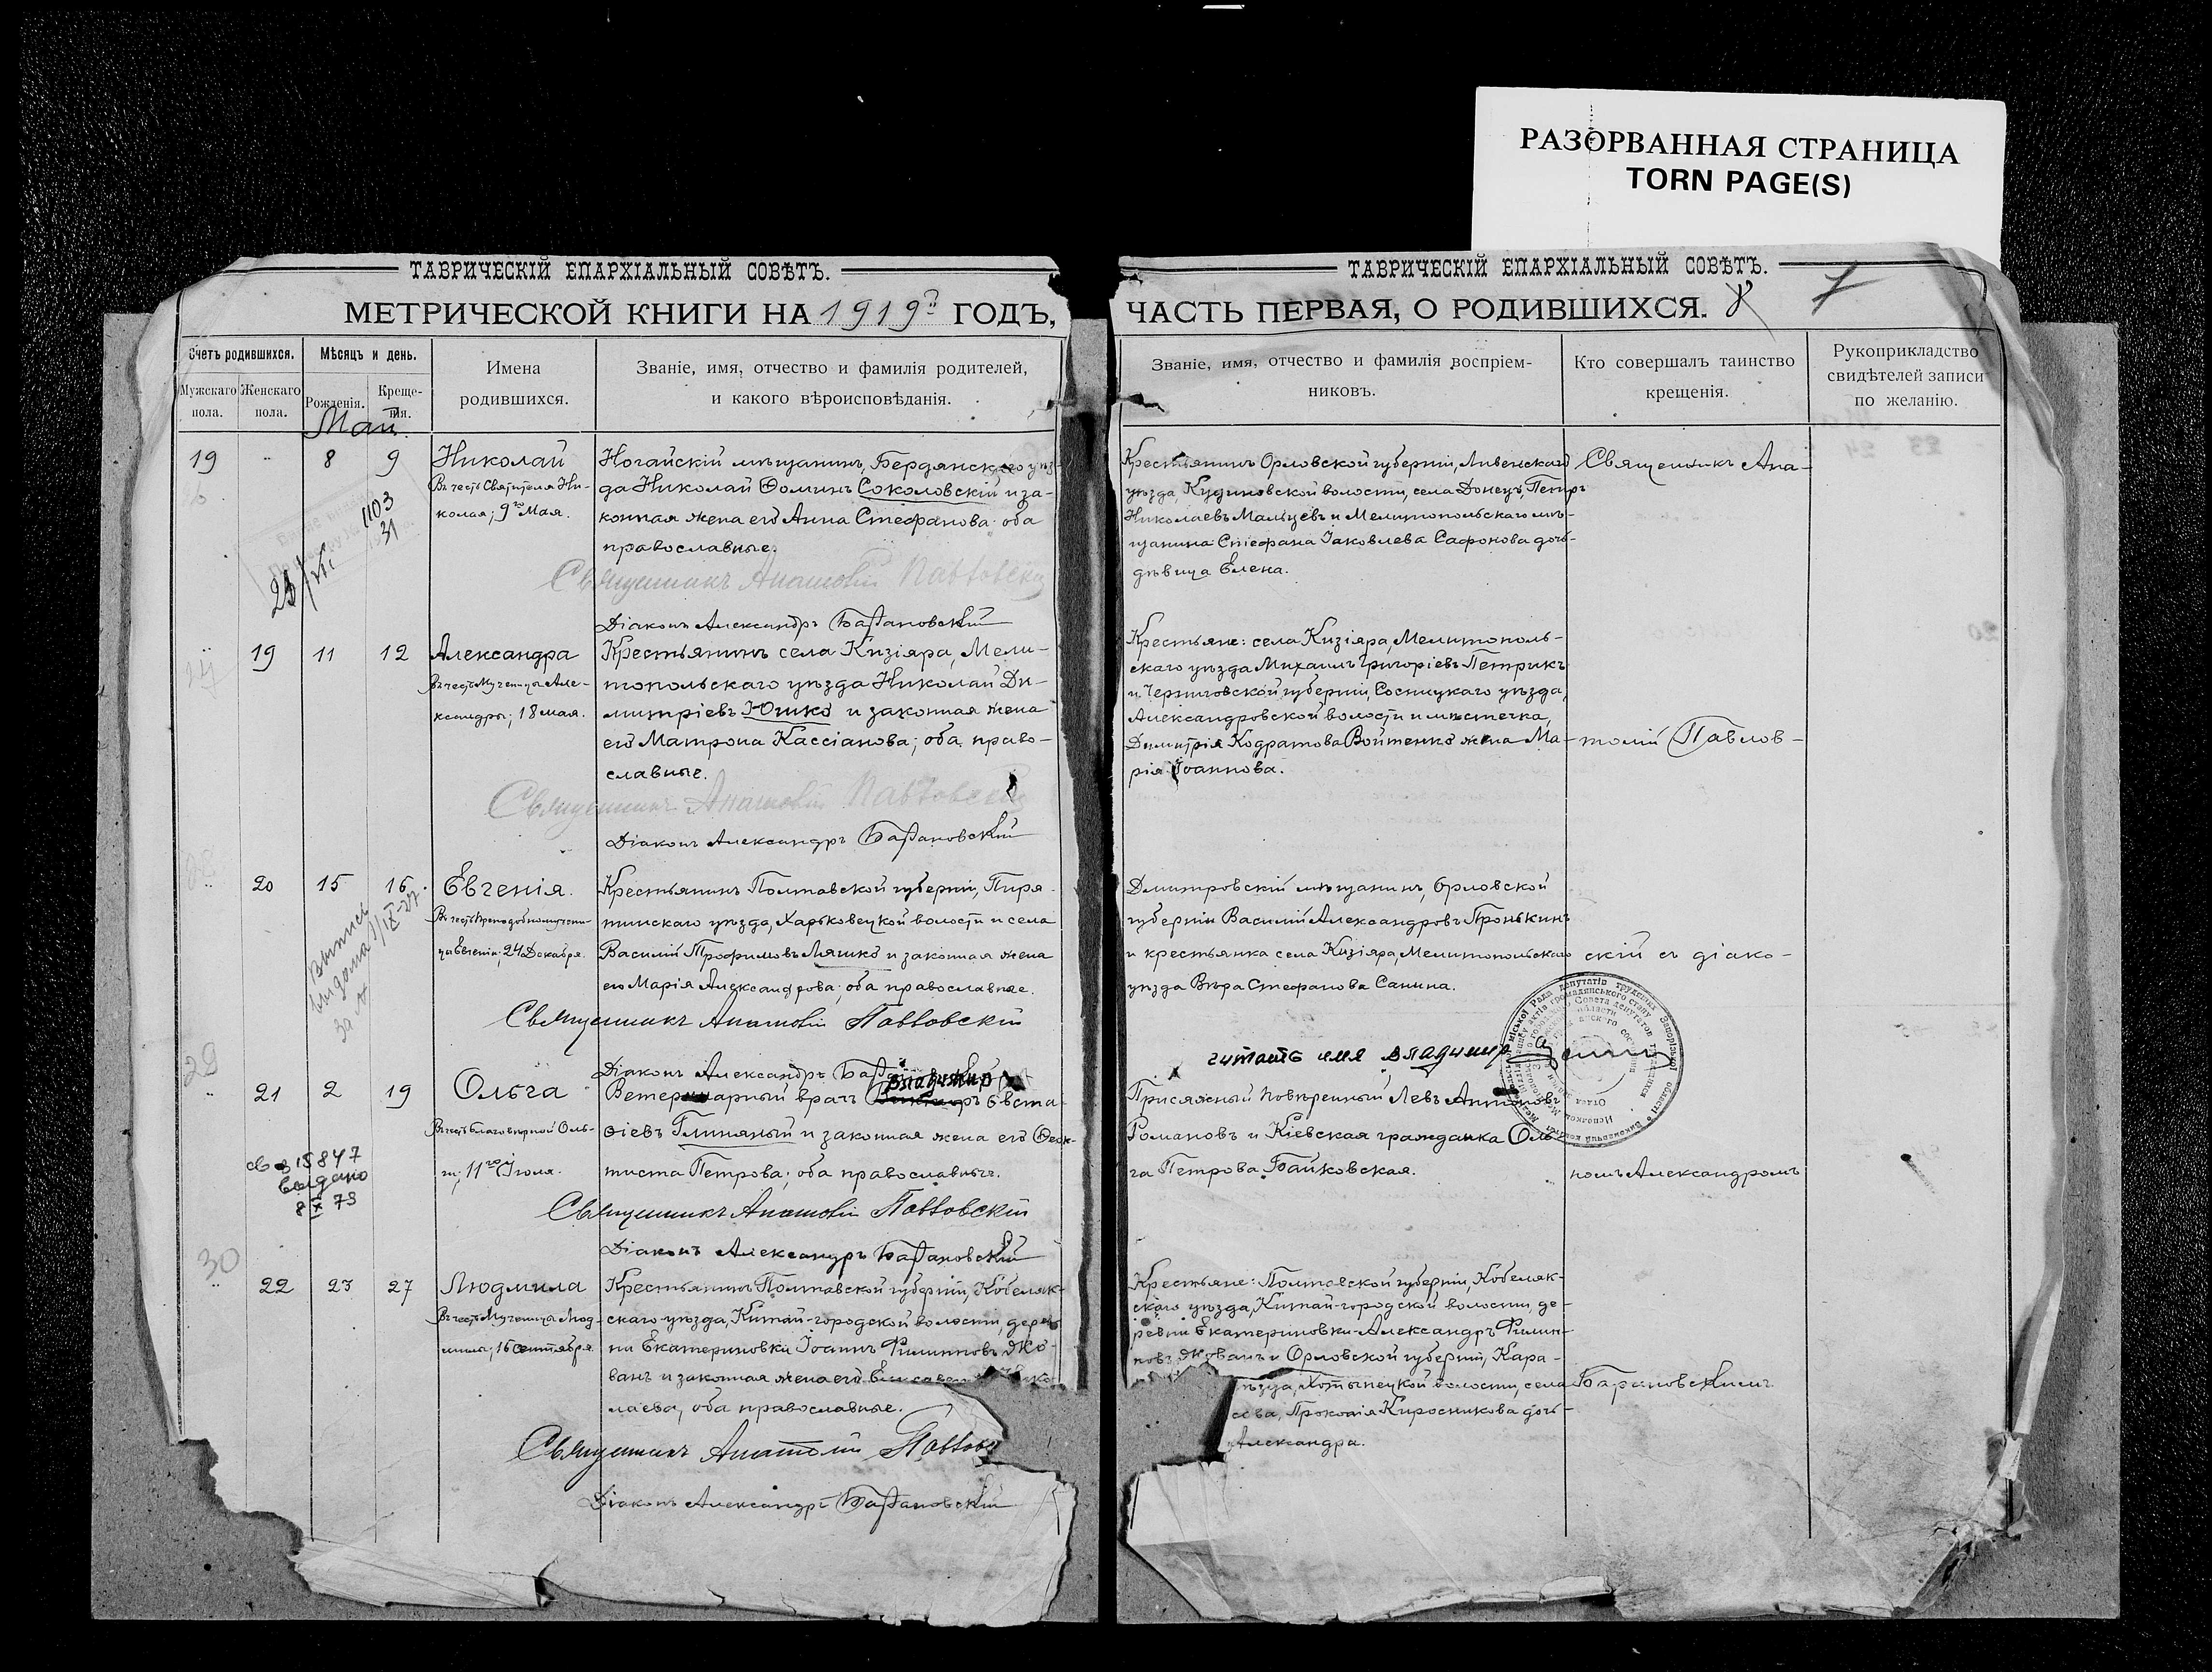 РАЗОРВАННАЯ СТРАНИЦА
TORN PAGE(S)
ТАВРИЧЕСКІЙ ЕПАРХІАЛЬНЫЙ СОВѢТЪ.
МЕТРИЧЕСКОЙ КНИГИ НА 1919й ГОДЪ,
Счетъ родившихся.
Мужскаго пола.
Женскаго пола.
Мѣсяцъ и день.
Рожденія.
Креще-
нія.
Имена
родившихся.
Званіе, имя, отчество и фамилія родителей,
и какого вѣроисповѣданія.
Май.
19 8 9 Николай
Въ честь Святителя Ни-
колая; 9го Мая.
1103
31
Ногайскій мѣщанинъ, Бердянскаго уѣз-
да Николай Ѳоминъ Соколовскій и за-
конная жена его Анна Стефанова; оба
православные.
Священникъ Анатолій Павловскій
Діаконъ Александръ Барановскій
19 11 12 Александра
Въ честь Мученицы Але-
ксандры; 18 мая.
Крестьянинъ села Кизіяра, Мели-
топольскаго уѣзда Николай Ди-
митріевъ Юшко и законная жена
его Матрона Кассіанова; оба право-
славные.
Священникъ Анатолій Павловскій
Діаконъ Александръ Барановскій
20 15 16 Евгенія.
Въ честь Преподобномучени-
цы Евгеніи; 24 Декабря.
Выпись
выдана
Крестьянинъ Полтавской губерніи, Пиря-
тинскаго уѣзда, Харьковецкой волости и села
Василій Трофимовъ Ляшко и законная жена
его Марія Александрова; оба православные.
Священникъ Анатолій Павловскій
Діаконъ Александръ
21 2 19 Ольга
Въ честь Благовѣрной Оль-
ги; 11го Іюля.
св 315847
выдано
8 IX 73
Владимир
Ветеринарный врачъ Евста-
ѳіевъ Глиняный и законная жена его Ѳеок-
тиста Петрова; оба православные.
Священникъ Анатолій Павловскій
Діаконъ Александръ Барановскій
30
22 23 27 Людмила
Въ честь Мученицы Люд-
милы; 16 Сентября.
Крестьянинъ Полтавской губерніи, Кобеляк-
скаго уѣзда, Китай-городской волости, дерев-
ни Екатериновки Іоаннъ Филипповъ Жо-
ванъ и законная жена его
лаева; оба православные.
Священникъ Анатолій
Діаконъ Александръ Барановскій
ТАВРИЧЕСКІЙ ЕПАРХІАЛЬНЫЙ СОВѢТЪ.
ЧАСТЬ ПЕРВАЯ, О РОДИВШИХСЯ. 7
Званіе, имя, отчество и фамилія воспріем-
никовъ.
Кто совершалъ таинство
крещенія.
Рукоприкладство
свидѣтелей записи
по желанію.
Крестьянинъ Орловской губерніи, Ливенскаго
уѣзда, Кудиновской волости, села Донецъ, Петръ
Николаевъ Мальцевъ и Мелитопольскаго мѣ-
щанина Стефана Іаковлева Сафонова дочь
дѣвица Елена.
Крестьяне: села Кизіяра, Мелитополь-
скаго уѣзда Михаилъ Григоріевъ Петрикъ
и Черниговской губерніи, Сосницкаго уѣзда,
Александровской волости и мѣстечка,
Димитрія Кодратова Войтенко жена Ма-
рія Іоаннова.
Дмитровскій мѣщанинъ, Орловской
губерніи Василій Александровъ Пронькинъ
и крестьянка села Кизіяра, Мелитопольскаго
уѣзда Вѣра Стефанова Санина.
читать имя Владимир
Присяжный повѣренный Левъ Антоновъ
Романовъ и Кіевская гражданка Оль-
га Петрова Байковская.
Крестьяне: Полтавской губерніи, Кобеляк-
скаго уѣзда, Китай-городской волости, де-
ревни Екатериновки-Александръ Филип-
повъ Жованъ и Орловской губерніи, Кара-
уѣзда, Хотынецкой волости, села
Прокопія Киросникова дочь
Александра.
Священникъ Ана-
толій Павлов-
скій съ діако-
номъ Александромъ
Барановскимъ